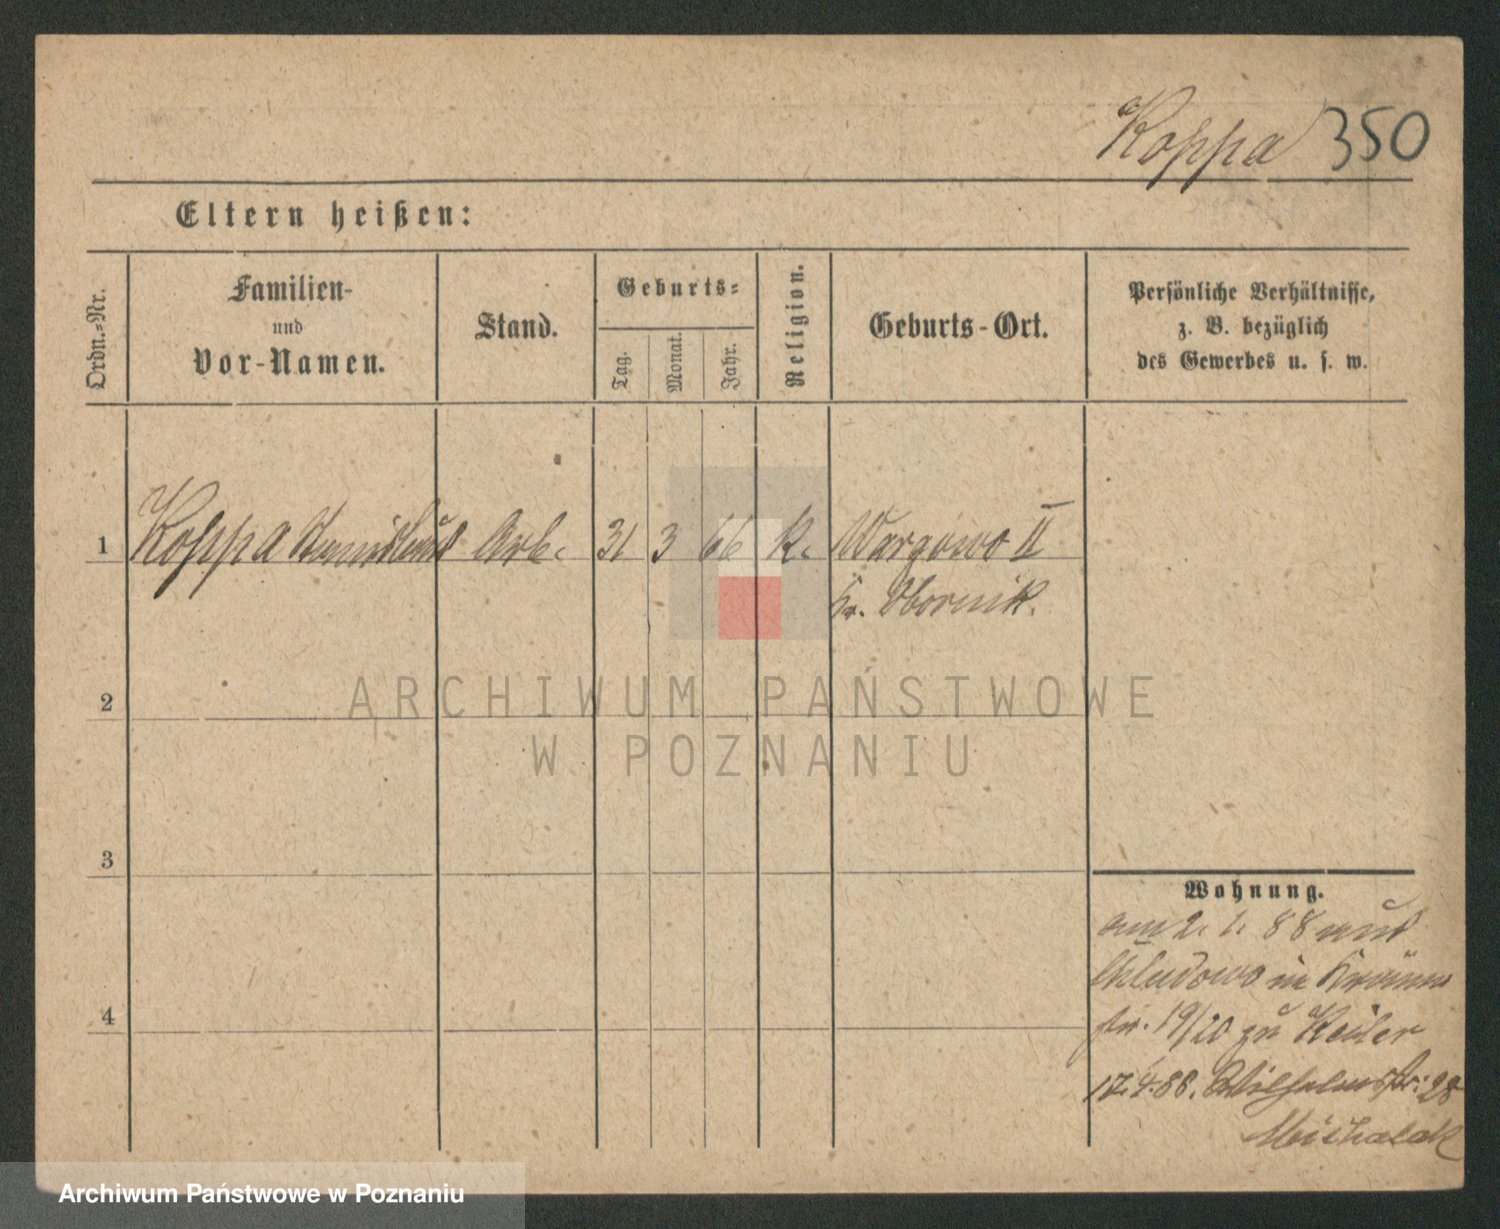 Koppa 350
Eltern heißen:
Ordn.-Nr.
Familien-
und
Vor-Namen.
Stand.
Geburts-
Tag.
Monat.
Jahr.
Religion.
Geburts-Ort.
Persönliche Verhältnisse,
z. B. bezüglich
des Gewerbes u. s. w.
1 Koppa Stanislaus Arb. 31 3 66 k. Wargowo II
Kr. Obornik.
2
3
4
Wohnung.
am 2. 1. 88 aus
Chludowo in
str. 19/20 zu Keiler
17.4.88. Wilhelmstr: 28
Michalak
ARCHIWUM PAŃSTWOWE
W POZNANIU
Archiwum Państwowe w Poznaniu